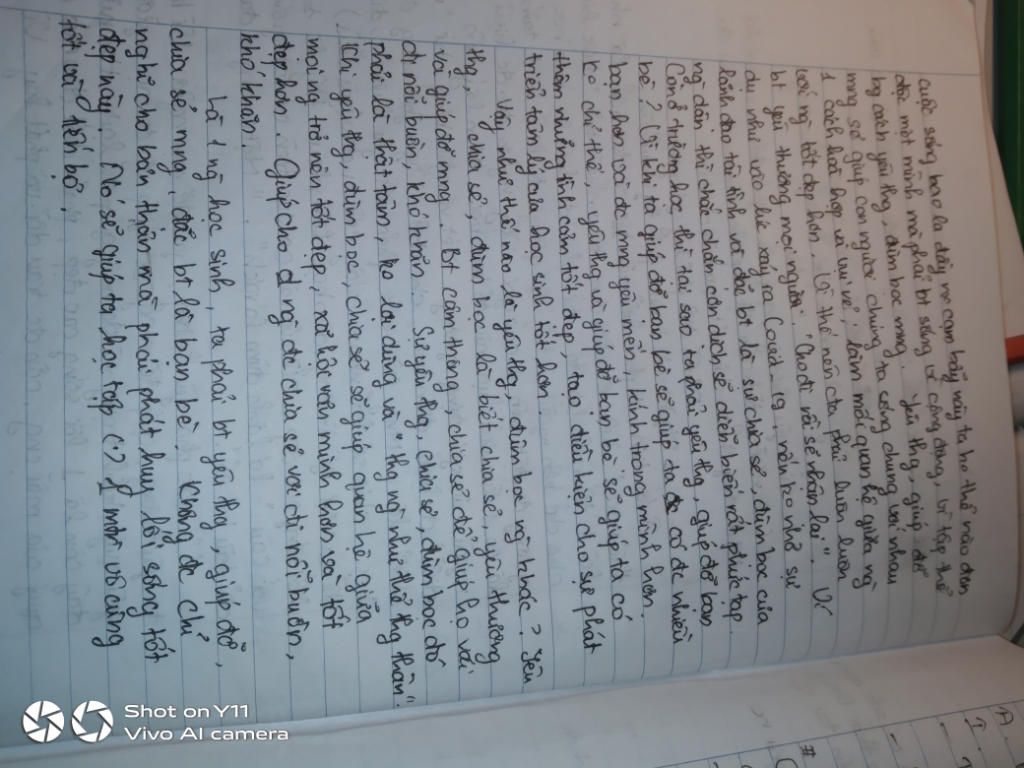 cuộc sống bao la đầy mẹ cạm bẫy này ta ko thể nào đơn
độc một mình mà phải bt sống vì cộng đồng, vì tập thể
bg cách yêu thg, đùm bọc mng. Yêu thg, giúp đỡ
mng sẽ giúp con người chúng ta sống chung với nhau
1 cách hoà hợp và vui vẻ, làm mối quan hệ giữa ng
với ng tốt đẹp hơn. Vì thế nên cta phải luôn luôn
bt yêu thương mọi người. "Cho đi rồi sẽ nhận lại". Ví
dụ như vào lúc xảy ra Covid 19, nếu ko nhờ sự
lãnh đạo tài tình và đặc bt là sự chia sẻ, đùm bọc của
ng dân thì chắc chắn còn dịch sẽ diễn biến rất phức tạp.
Còn ở trường học thì tại sao ta phải yêu thg, giúp đỡ bạn
bè? Vì khi ta giúp đỡ bạn bè sẽ giúp ta có đc nhiều
bạn hơn và đc mng yêu mến, kính trọng mình hơn.
Ko chỉ thế, yêu thg và giúp đỡ bạn bè sẽ giúp ta có
thêm những tình cảm tốt đẹp, tạo điều kiện cho sự phát
triển tâm lý của học sinh tốt hơn.
Vậy như thế nào là yêu thg, đùm bọc ng khác? Yêu
thg, chia sẻ, đùm bọc là biết chia sẻ, yêu thương
và giúp đỡ mng. Bt cảm thông, chia sẻ để giúp họ vơi
đi nỗi buồn, khó khăn. Sự yêu thg, chia sẻ, đùm bọc đó
phải là thật tâm, ko lợi dụng và "thg ng như thể thg thân".
Khi yêu thg, đùm bọc, chia sẻ sẽ giúp quan hệ giữa
mọi ng trở nên tốt đẹp, xã hội văn minh hơn và tốt
đẹp hơn. Giúp cho ng đc chia sẻ vơi đi nỗi buồn,
khó khăn.
Là 1 ng học sinh, ta phải bt yêu thg, giúp đỡ,
chia sẻ mng, đặc bt là bạn bè. Không đc chỉ
nghĩ cho bản thân mà phải phát huy lối sống tốt
đẹp này. Nó sẽ giúp ta học tập môi vô cùng
tốt và tiến bộ.
Shot on Y11
Vivo AI camera